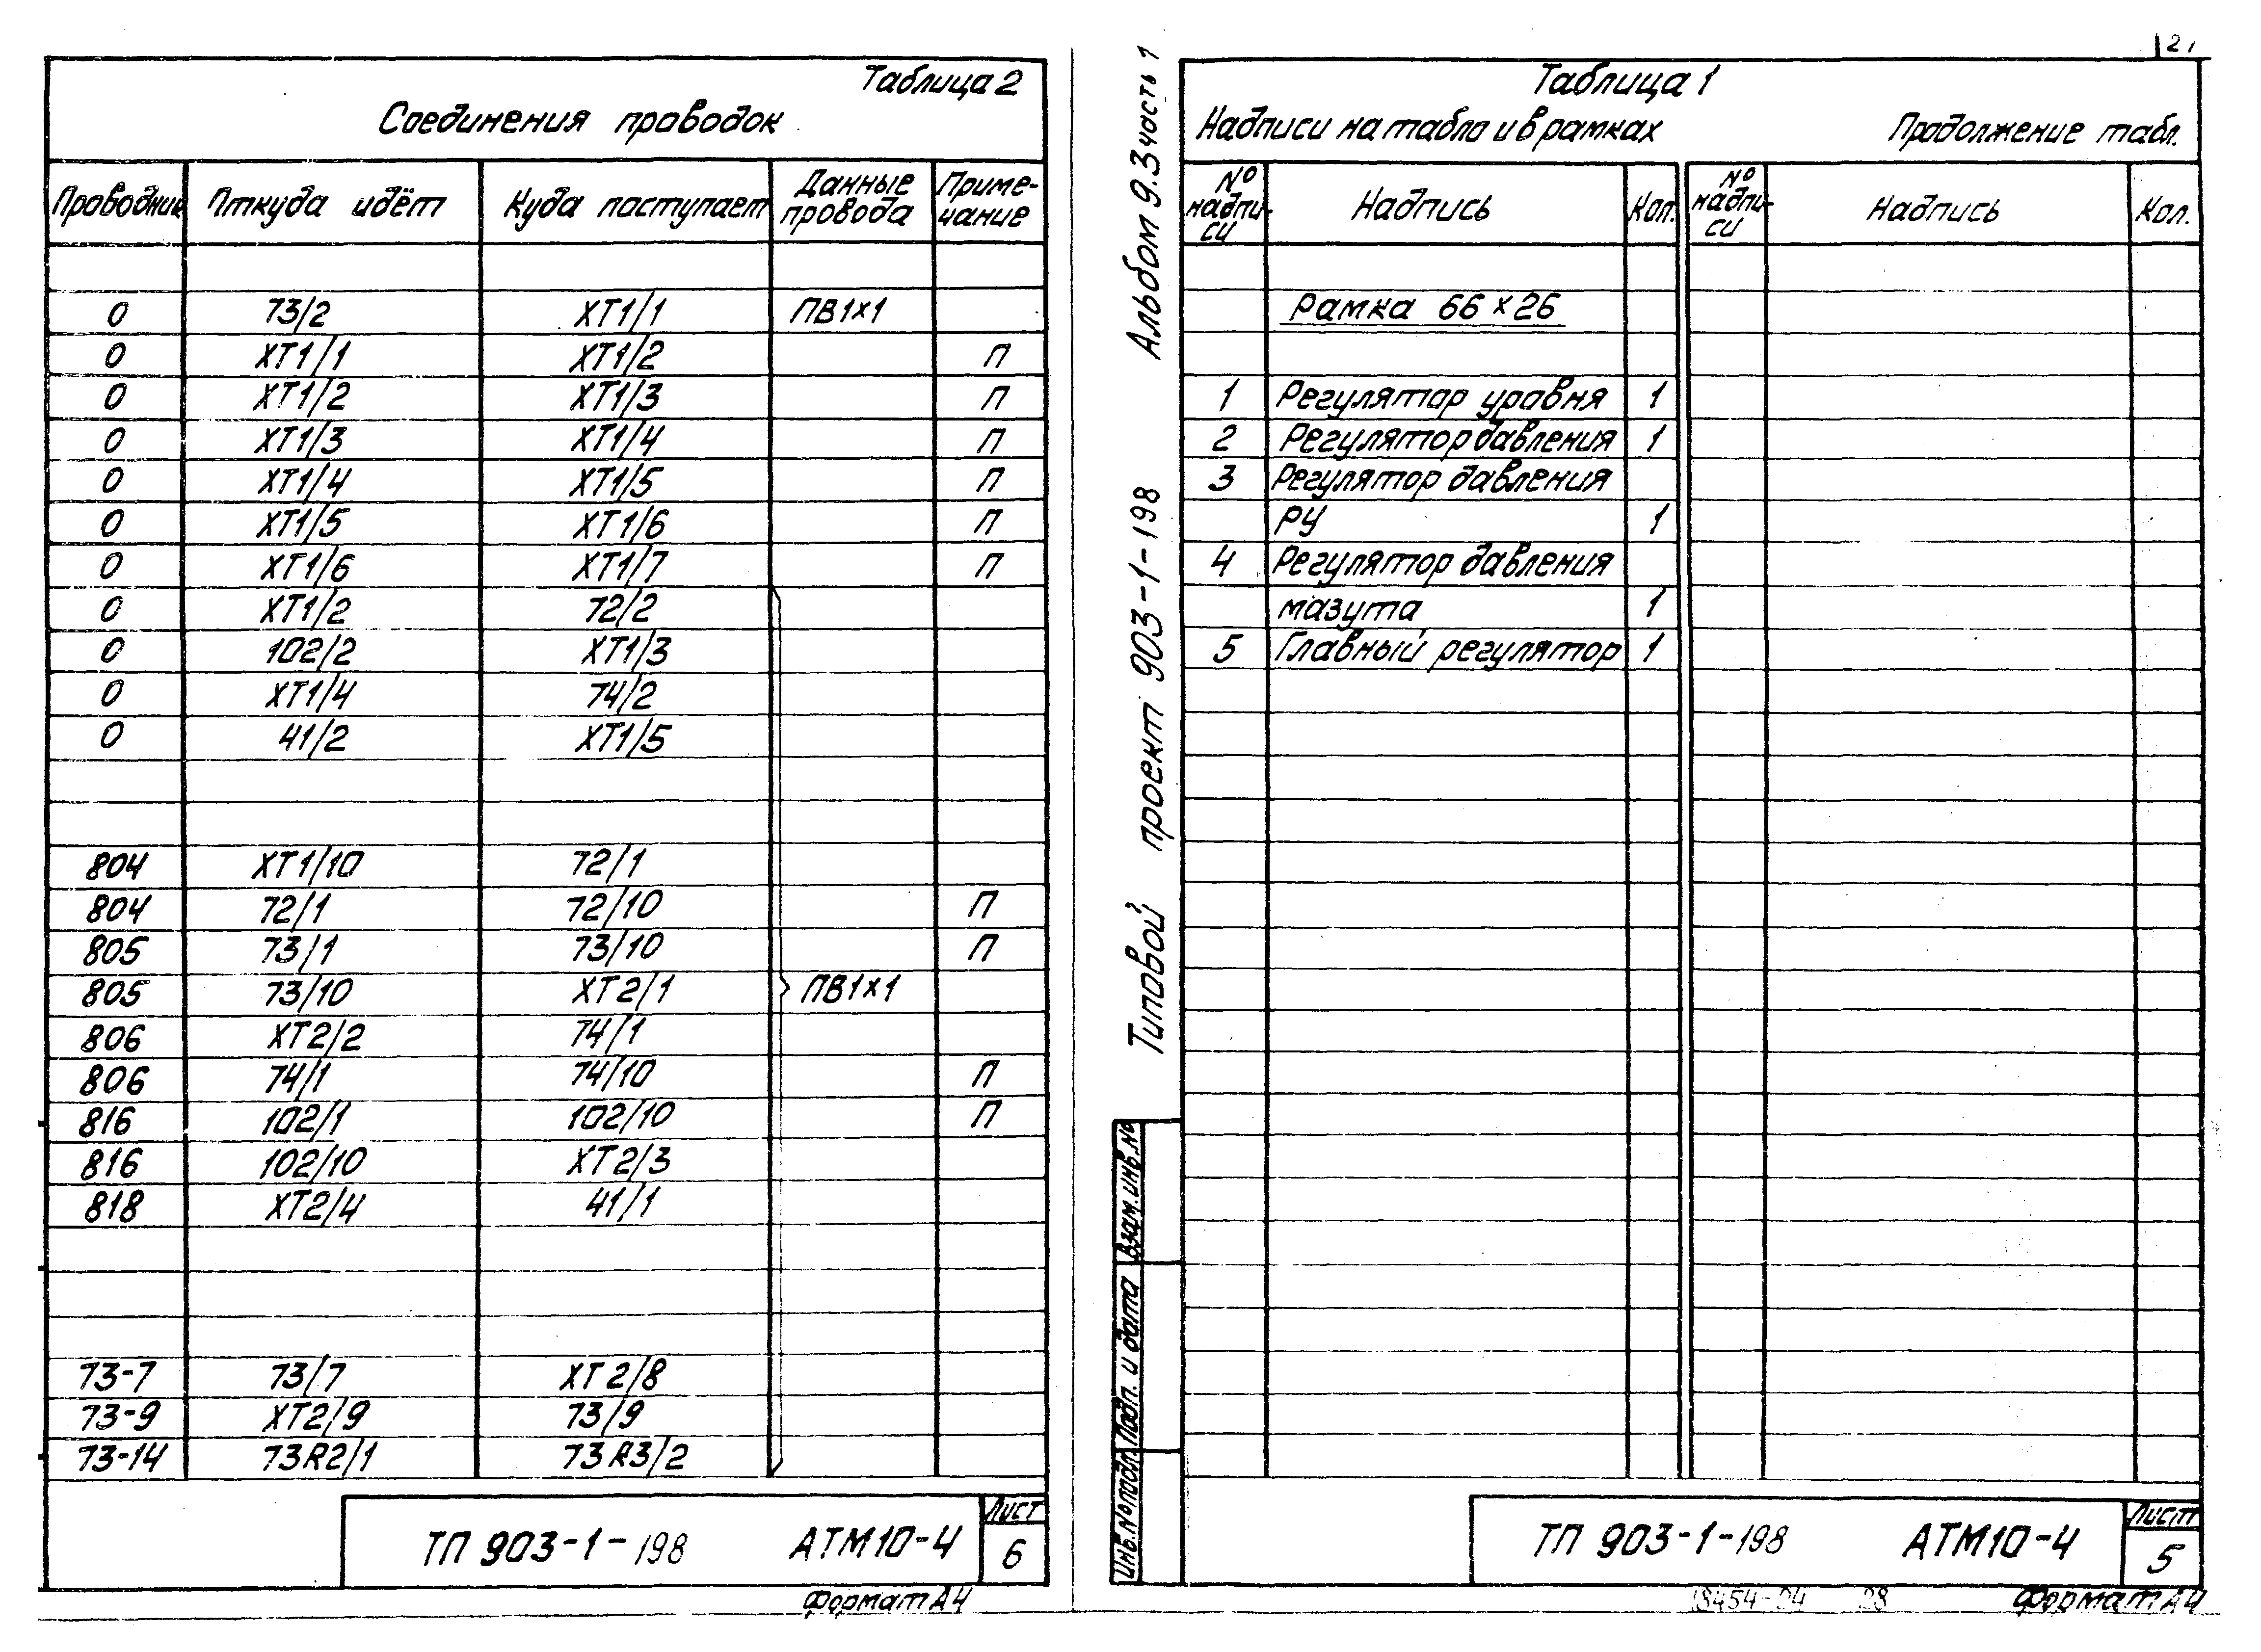 Таблица 2
Соединения проводок
Проводник Откуда идёт Куда поступает Данные провода Приме-чание
0 73/2 ХТ1/1 ПВ1х1
0 ХТ1/1 ХТ1/2 П
0 ХТ1/2 ХТ1/3 П
0 ХТ1/3 ХТ1/4 П
0 ХТ1/4 ХТ1/5 П
0 ХТ1/5 ХТ1/6 П
0 ХТ1/6 ХТ1/7 П
0 ХТ1/2 72/2
0 102/2 ХТ1/3
0 ХТ1/4 74/2
0 41/2 ХТ1/5
804 ХТ1/10 72/1
804 72/1 72/10 П
805 73/1 73/10 П
805 73/10 ХТ2/1 ПВ1х1
806 ХТ2/2 74/1
806 74/1 74/10 П
816 102/1 102/10 П
816 102/10 ХТ2/3
818 ХТ2/4 41/1
73-7 73/7 ХТ2/8
73-9 ХТ2/9 73/9
73-14 73R2/1 73R3/2
ТП 903-1-198 АТМ10-4 Лист 6
Формат А4
Типовой проект 903-1-198 Альбом 9.3 часть 1
Взам.инв.№
Подп. и дата
Инв.№ подл.
Таблица 1
Надписи на табло и в рамках Продолжение табл.
№ надпи-си Надпись Кол. № надпи-си Надпись Кол.
Рамка 66х26
1 Регулятор уровня 1
2 Регулятор давления 1
3 Регулятор давления
РУ 1
4 Регулятор давления
мазута 1
5 Главный регулятор 1
ТП 903-1-198 АТМ10-4 Лист 5
18454-04 28 Формат А4